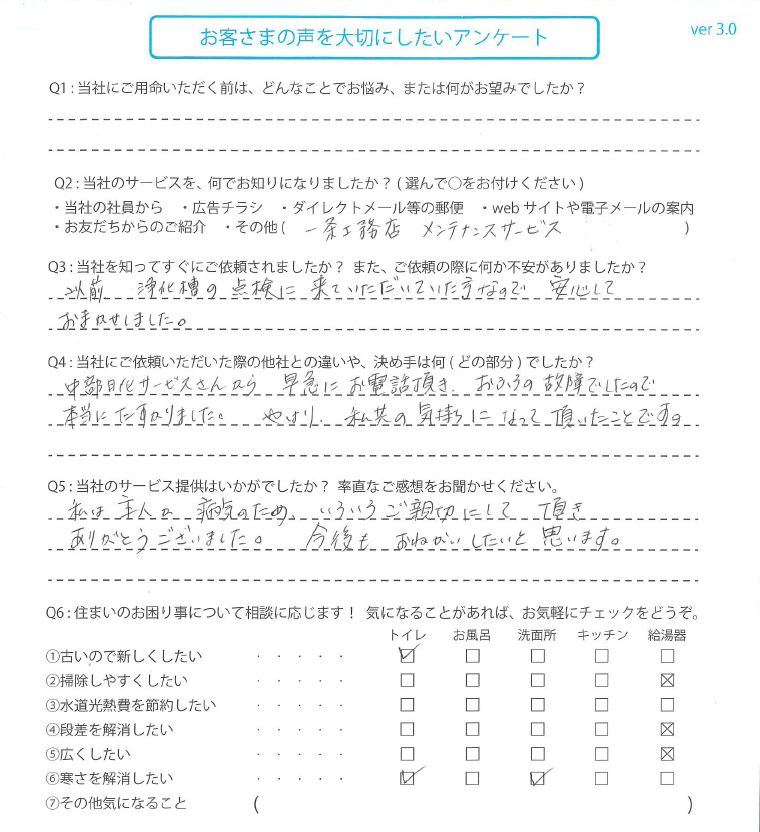 お客さまの声を大切にしたいアンケート
ver 3.0
Q1 : 当社にご用命いただく前は、どんなことでお悩み、または何がお望みでしたか？
Q2 : 当社のサービスを、何でお知りになりましたか？ ( 選んで○をお付けください )
・当社の社員から ・広告チラシ ・ダイレクトメール等の郵便 ・web サイトや電子メールの案内
・お友だちからのご紹介 ・その他 ( 一条工務店 メンテナンスサービス )
Q3 : 当社を知ってすぐにご依頼されましたか？ また、ご依頼の際に何か不安がありましたか？
以前 浄化槽の点検に来ていただいていた方なので 安心して
おまかせしました。
Q4 : 当社にご依頼いただいた際の他社との違いや、決め手は何 ( どの部分 ) でしたか？
中部日化サービスさんから 早急にお電話頂き、おふろの故障でしたので
本当にたすかりました。 やはり、私共の気持ちになって頂いたことです。
Q5 : 当社のサービス提供はいかがでしたか？ 率直なご感想をお聞かせください。
私は主人が病気のため、いろいろご親切にして頂き
ありがとうございました。 今後もおねがいしたいと思います。
Q6 : 住まいのお困り事について相談に応じます！ 気になることがあれば、お気軽にチェックをどうぞ。
トイレ お風呂 洗面所 キッチン 給湯器
①古いので新しくしたい ・・・・・ ☑ □ □ □ □
②掃除しやすくしたい ・・・・・ □ □ □ □ ☒
③水道光熱費を節約したい ・・・・・ □ □ □ □ □
④段差を解消したい ・・・・・ □ □ □ □ ☒
⑤広くしたい ・・・・・ □ □ □ □ ☒
⑥寒さを解消したい ・・・・・ ☑ □ ☑ □ □
⑦その他気になること ( )